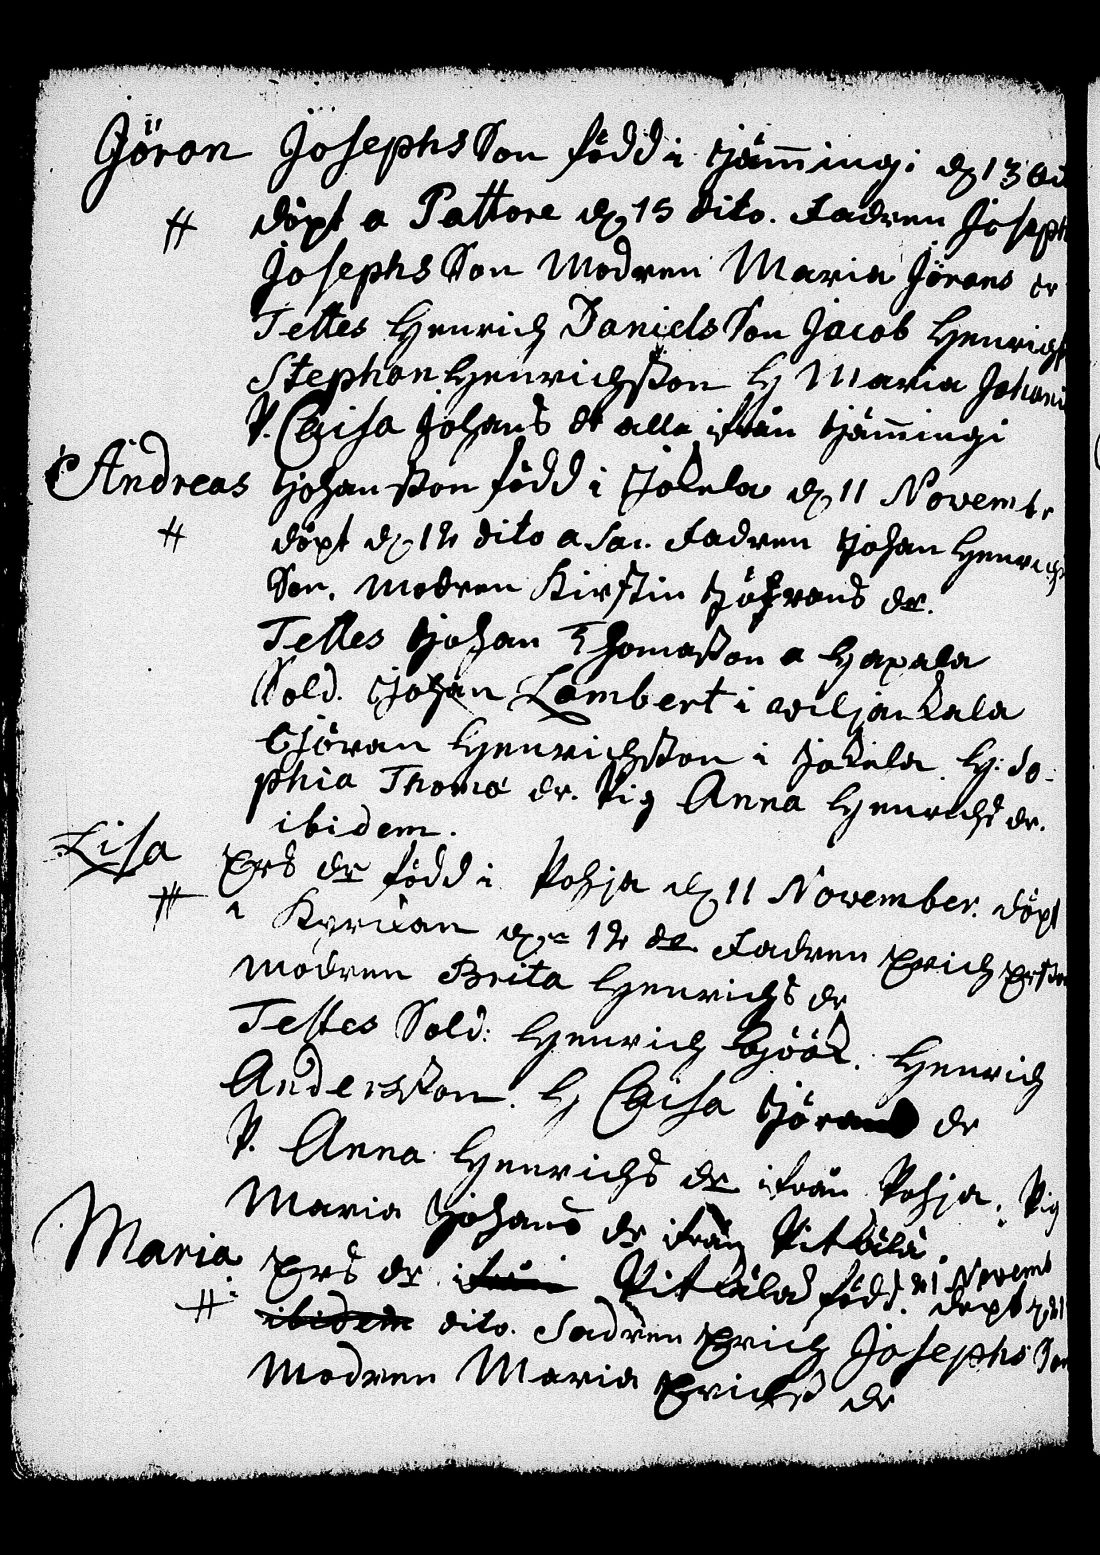 Jöran Josephs Son född i Jämmingi d 13 Oct
döpt a Pattore d 15 dito. Fadren Joseph
Josephs Son Modren Maria Jörans dr
Testes Henrich Daniels Son Jacob Henrichs
Stephan Henrichsson H Maria Johans
P. Caisa Johans dr alla ifrån Jämmingi
Andreas Johansson född i Jokela d 11 Novembr
döpt d 12 dito a Sac. Fadren Johan Henrichs
Son. Modren Kirstin Jöhrans dr.
Testes Johan Thomasson a Hapala
Sold. Johan Lambert i wiljankala
Göran Henrichsson i Jokela. H: So-
phia Thomæ dr. Pig Anna Henrichs dr.
ibidem.
Lisa Ers dr född i Pohja d 11 November. döpt
i Kyrkan d 12 do. Fadren Erich Ersson
Modren Brita Henrichs dr
Testes Sold: Henrich Höök. Henrich
Andersson. H Caisa Jörans dr
P. Anna Henrichs dr ifrån Pohja. Pig
Maria Johans dr ifrån Pitkälä.
Maria Ers dr ifrån Pitkälä född. 21 Novemb
ibidem dito. döpt Fadren Erich Josephs Son
Modren Maria Erichs dr